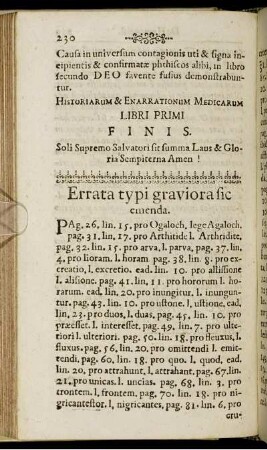 230
Causa in universum contagionis uti & signa in-
cipientis & confirmatæ phthiseos alibi, in libro
secundo DEO favente fusius demonstrabun-
tur.
HISTORIARUM & ENARRATIONUM MEDICARUM
LIBRI PRIMI
FINIS.
Soli Supremo Salvatori sit summa Laus & Glo-
ria Sempiterna Amen!
Errata typi graviora sic
emenda.
PAg. 26, lin. 15, pro Ogaloch, lege Agaloch.
pag. 31, lin, 17. pro Arthitide l. Arthridite,
pag. 32. lin. 15. pro arva, l. parva, pag. 37. lin.
4, pro lioram. l. horam pag. 38. lin. 8. pro ex-
creatio, l, excretio. ead. lin. 10. pro allisione
l. alisione. pag. 41. lin, 11. pro hororum l. ho-
rarum. ead, lin, 20, pro inungitur. l. inungun-
tur. pag. 43. lin. 10. pro ustone. l, ustione, ead,
lin, 23. pro duos, l. duas, pag. 45. lin. 10. pro
præesset. l. interesset. pag. 49. lin. 7. pro ulte-
riori l. ulteriori. pag. 50. lin. 18. pro fleuxus, l.
fluxus. pag. 56, lin. 20. pro omittendi l. emit-
tendi, pag. 60, lin. 18. pro quo. l. quod, ead.
lin. 20, pro attrahunt, l, attrahant. pag. 67. lin.
21. pro unicas. l. uncias. pag, 68, lin. 3. pro
trontem. l, frontem. pag. 70. lin. 18. pro ni-
gricantestor. l, nigricantes, pag. 81. lin. 6, pro
cru-